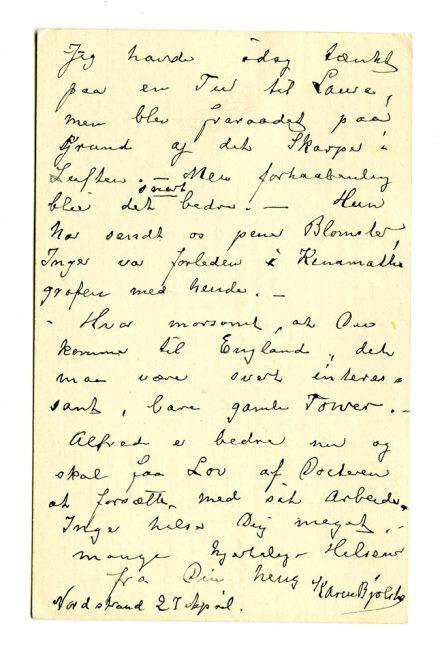 Jeg havde idag tænkt
paa en Tur til Laura,
men blev fraraadet paa
Grund af det Skarpe i
Luften. — Men forhaabentlig
snart
blir det bedre. — Hun
har sendt os pene Blomster,
Inger var forleden i Kinamatho
grafen med hende. —
- Hvor morsomt, at Du
kommer til England, det
maa være svært interes=
sant, bare gamle Tower. —
Alfred er bedre nu og
skal faa Lov af Doctoren
at forsætte med sit Arbeide.
Inger hilser Dig meget. —
mange hjertelige Hilsener
fra Din heng Karen
Nordstrand 27 April.